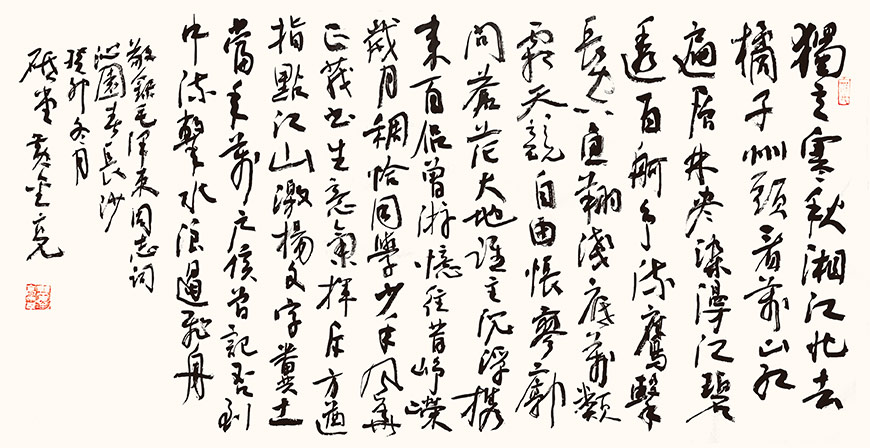 獨立寒秋湘江北去
橘子州頭看萬山紅
遍層林盡染漫江碧
透百舸爭流鷹擊
長空魚翔淺底萬類
霜天競自由悵寥廓
問蒼茫大地誰主沉浮攜
來百侶曾游憶往昔崢嶸
歲月稠恰同學少年風華
正茂書生意氣揮斥方遒
指點江山激揚文字糞土
當年萬戶侯曾記否到
中流擊水浪遏飛舟
敬錄毛澤東同志詞
沁園春長沙
癸卯冬月
砥堂金亮